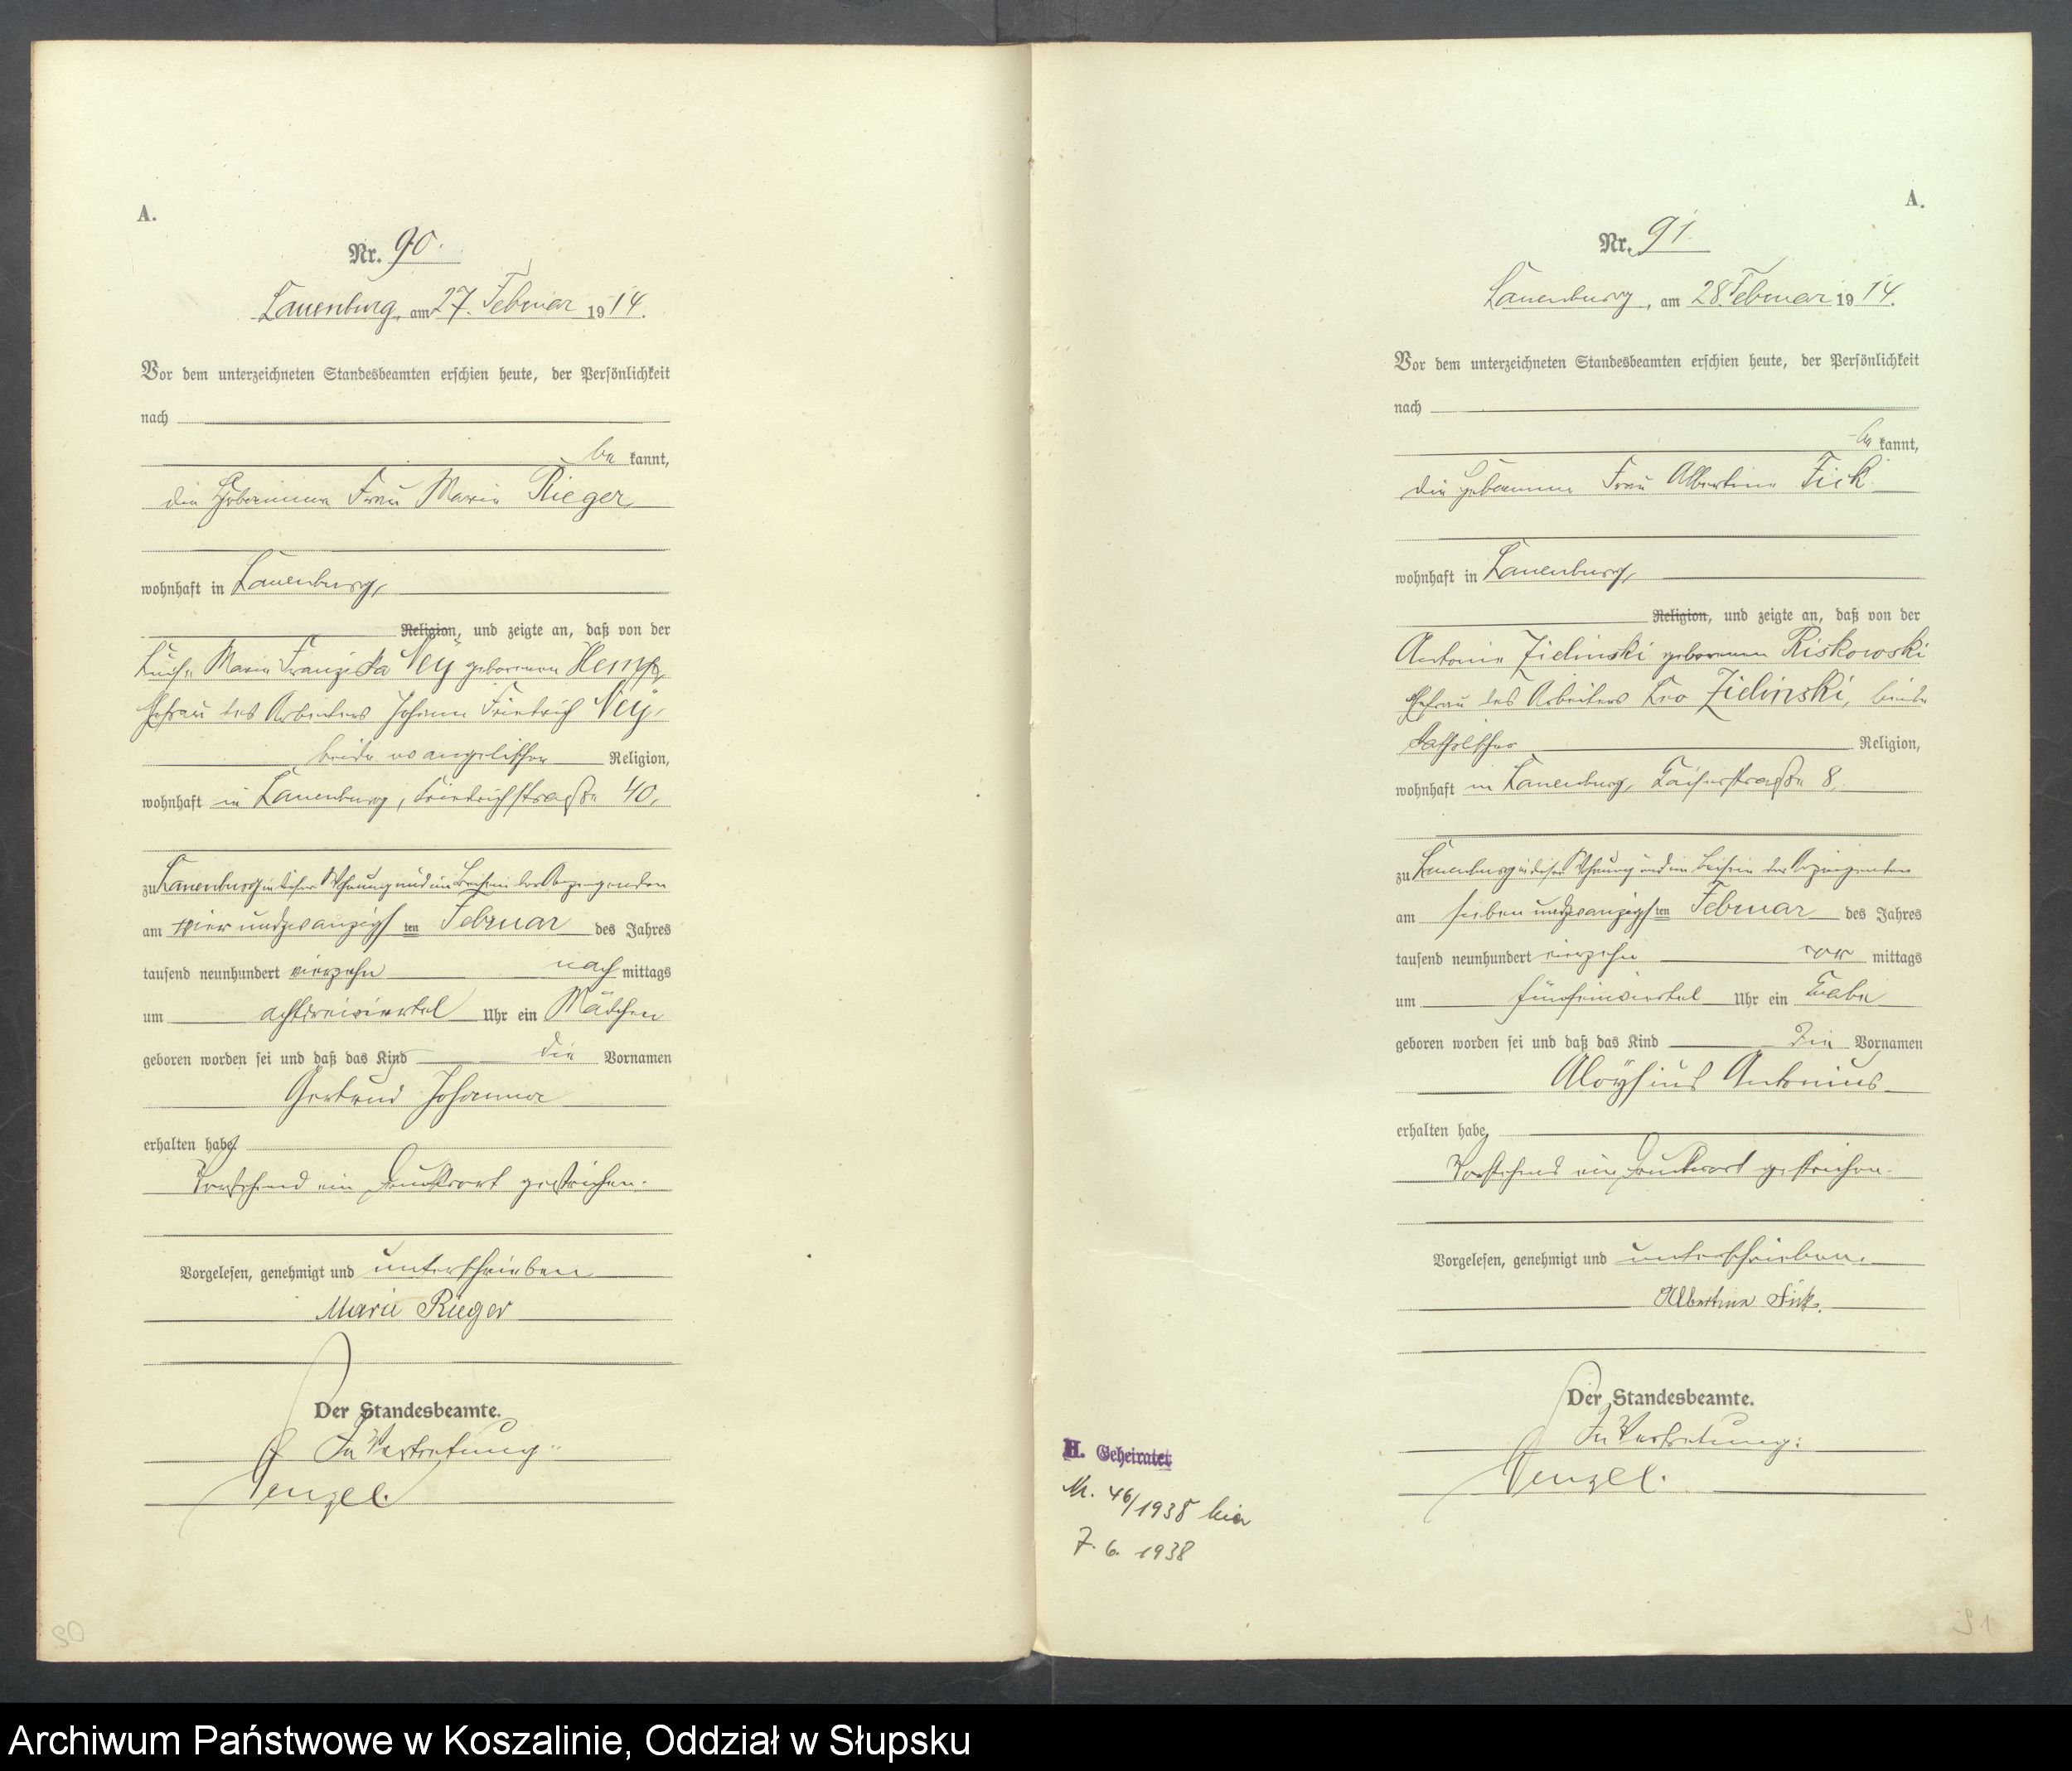 A.
Nr. 90.
Lauenburg, am 27. Februar 1914.
Vor dem unterzeichneten Standesbeamten erschien heute, der Persönlichkeit
nach
be kannt,
die Hebamme Frau Marie Rieger,
wohnhaft in Lauenburg,
Religion, und zeigte an, daß von der
Marie Franziska Ney geborenen Hempf,
Ehefrau des Arbeiters Johann Friedrich Ney,
beide evangelischer Religion,
wohnhaft in Lauenburg, Friedrichstraße 40,
zu Lauenburg in dieser Wohnung und im Beisein der Anzeigenden
am vier undzwanzigsten Februar des Jahres
tausend neunhundert vierzehn nach mittags
um achtdreiviertel Uhr ein Mädchen
geboren worden sei und daß das Kind die Vornamen
Gertrud Johanna
erhalten habe.
Vorstehend ein Druckwort gestrichen.
Vorgelesen, genehmigt und unterschrieben
Marie Rieger
Der Standesbeamte.
In Vertretung:
Wenzel.
90
A.
Nr. 91.
Lauenburg, am 28. Februar 1914.
Vor dem unterzeichneten Standesbeamten erschien heute, der Persönlichkeit
nach
be kannt,
die Hebamme Frau Albertine Fick
wohnhaft in Lauenburg,
Religion, und zeigte an, daß von der
Antonie Zielinski geborenen Riskowski
Ehefrau des Arbeiters Leo Zielinski, beide
katholischer Religion,
wohnhaft in Lauenburg, Kaiserstraße 8,
zu Lauenburg in dieser Wohnung und im Beisein der Anzeigenden
am sieben undzwanzigsten Februar des Jahres
tausend neunhundert vierzehn vor mittags
um fünfeinviertel Uhr ein Knabe
geboren worden sei und daß das Kind die Vornamen
Aloysius Antonius
erhalten habe.
Vorstehend ein Druckwort gestrichen.
Vorgelesen, genehmigt und unterschrieben.
Albertine Fick.
Der Standesbeamte.
In Vertretung:
Wenzel.
H. Geheiratet
Nr. 46/1938 hier
7. 6. 1938
91
Archiwum Państwowe w Koszalinie, Oddział w Słupsku